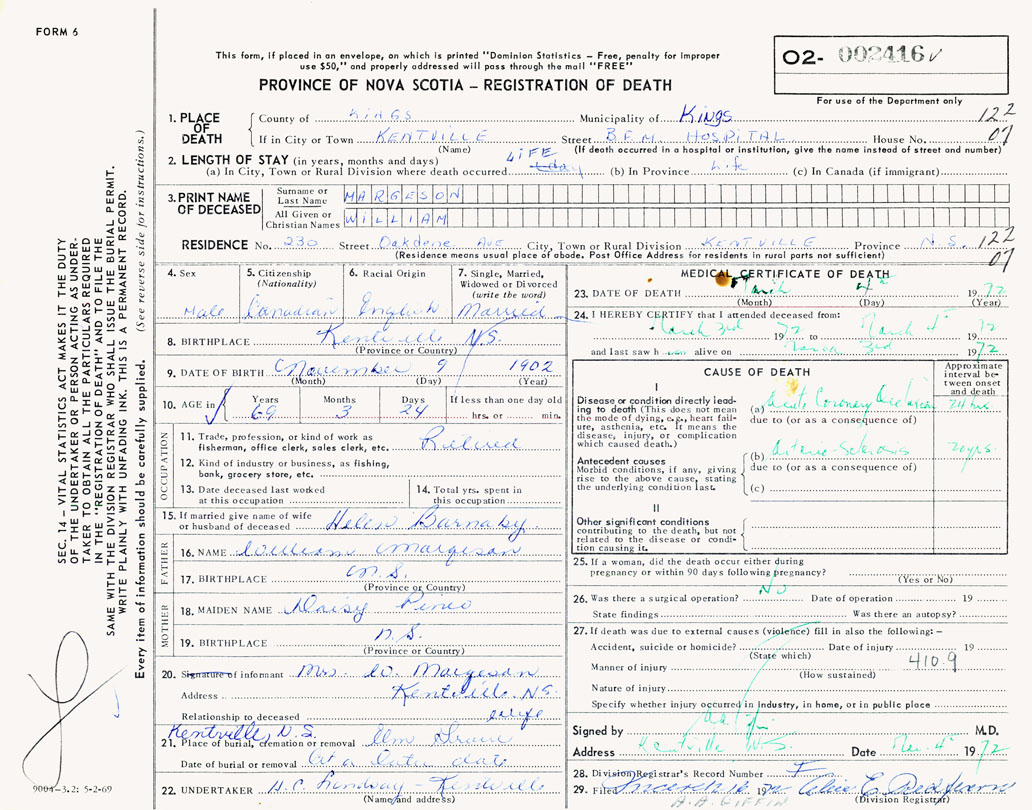 FORM 6
This form, if placed in an envelope, on which is printed "Dominion Statistics – Free, penalty for improper
use $50," and properly addressed will pass through the mail "FREE"
PROVINCE OF NOVA SCOTIA – REGISTRATION OF DEATH
O2- 002416
For use of the Department only
122
07
1. PLACE OF DEATH
County of KINGS Municipality of Kings
If in City or Town KENTVILLE Street B.F.M. HOSPITAL House No.
(Name) (If death occurred in a hospital or institution, give the name instead of street and number)
2. LENGTH OF STAY (in years, months and days) LIFE
(a) In City, Town or Rural Division where death occurred 1 day (b) In Province Life (c) In Canada (if immigrant)
3. PRINT NAME OF DECEASED
Surname or Last Name MARGESON
All Given or Christian Names WILLIAM
RESIDENCE No. 230 Street Oakdene Ave City, Town or Rural Division KENTVILLE Province N.S. 122
(Residence means usual place of abode. Post Office Address for residents in rural parts not sufficient) 07
4. Sex Male
5. Citizenship (Nationality) Canadian
6. Racial Origin English
7. Single, Married, Widowed or Divorced (write the word) Married
8. BIRTHPLACE Kentville N.S.
(Province or Country)
9. DATE OF BIRTH November 9 1902
(Month) (Day) (Year)
10. AGE in Years 69 Months 3 Days 24 If less than one day old hrs. or min.
OCCUPATION
11. Trade, profession, or kind of work as
fisherman, office clerk, sales clerk, etc. Retired
12. Kind of industry or business, as fishing,
bank, grocery store, etc.
13. Date deceased last worked
at this occupation
14. Total yrs. spent in
this occupation
15. If married give name of wife
or husband of deceased Helen Barnaby
FATHER
16. NAME William Margeson
17. BIRTHPLACE N.S.
(Province or Country)
MOTHER
18. MAIDEN NAME Daisy Pineo
19. BIRTHPLACE N.S.
(Province or Country)
20. Signature of informant Mrs. W. Margeson
Address Kentville, NS.
Relationship to deceased wife
Kentville, N.S.
21. Place of burial, cremation or removal Elm Grove
Date of burial or removal At a later date
22. UNDERTAKER H.C. Lindsay - Kentville
(Name and address)
MEDICAL CERTIFICATE OF DEATH
23. DATE OF DEATH March 4th 1972
(Month) (Day) (Year)
24. I HEREBY CERTIFY that I attended deceased from:
March 3rd 1972 to March 4th 1972
and last saw h alive on March 3rd 1972
CAUSE OF DEATH
Approximate interval between onset and death
I
Disease or condition directly leading to death (This does not mean the mode of dying, e.g., heart failure, asthenia, etc. It means the disease, injury, or complication which caused death.)
(a) Acute Coronary Occlusion 24 hrs
due to (or as a consequence of)
Antecedent causes
Morbid conditions, if any, giving rise to the above cause, stating the underlying condition last.
(b) Arterio-Sclerosis 20 yrs.
due to (or as a consequence of)
(c)
II
Other significant conditions
contributing to the death, but not related to the disease or condition causing it.
25. If a woman, did the death occur either during
pregnancy or within 90 days following pregnancy?
(Yes or No)
26. Was there a surgical operation? No Date of operation 19
State findings Was there an autopsy?
27. If death was due to external causes (violence) fill in also the following: –
Accident, suicide or homicide? Date of injury 19
(State which)
Manner of injury 4109
(How sustained)
Nature of injury
Specify whether injury occurred in industry, in home, or in public place
Signed by M.D.
Address Kentville N.S. Date Mar. 4th 1972
28. Division Registrar's Record Number
29. Filed 19 Alice E.
(Division Registrar)
H.A. GIFFIN
SEC. 14 – VITAL STATISTICS ACT MAKES IT THE DUTY
OF THE UNDERTAKER OR PERSON ACTING AS UNDER-
TAKER TO OBTAIN ALL THE PARTICULARS REQUIRED
IN THE "REGISTRATION OF DEATH" AND TO FILE THE
SAME WITH THE DIVISION REGISTRAR WHO SHALL ISSUE THE BURIAL PERMIT.
WRITE PLAINLY WITH UNFADING INK. THIS IS A PERMANENT RECORD.
Every item of information should be carefully supplied. (See reverse side for instructions.)
9004–3.2: 5-2-69